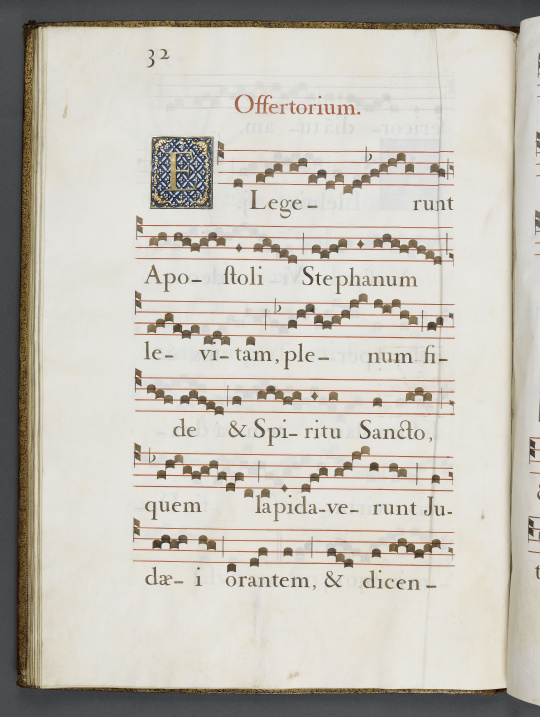 32
Offertorium.
ELege- runt
Apo- stoli Stephanum
le- vi- tam, ple- num fi-
de & Spi- ritu Sancto,
quem lapida-ve- runt Ju-
dæ- i orantem, & dicen-